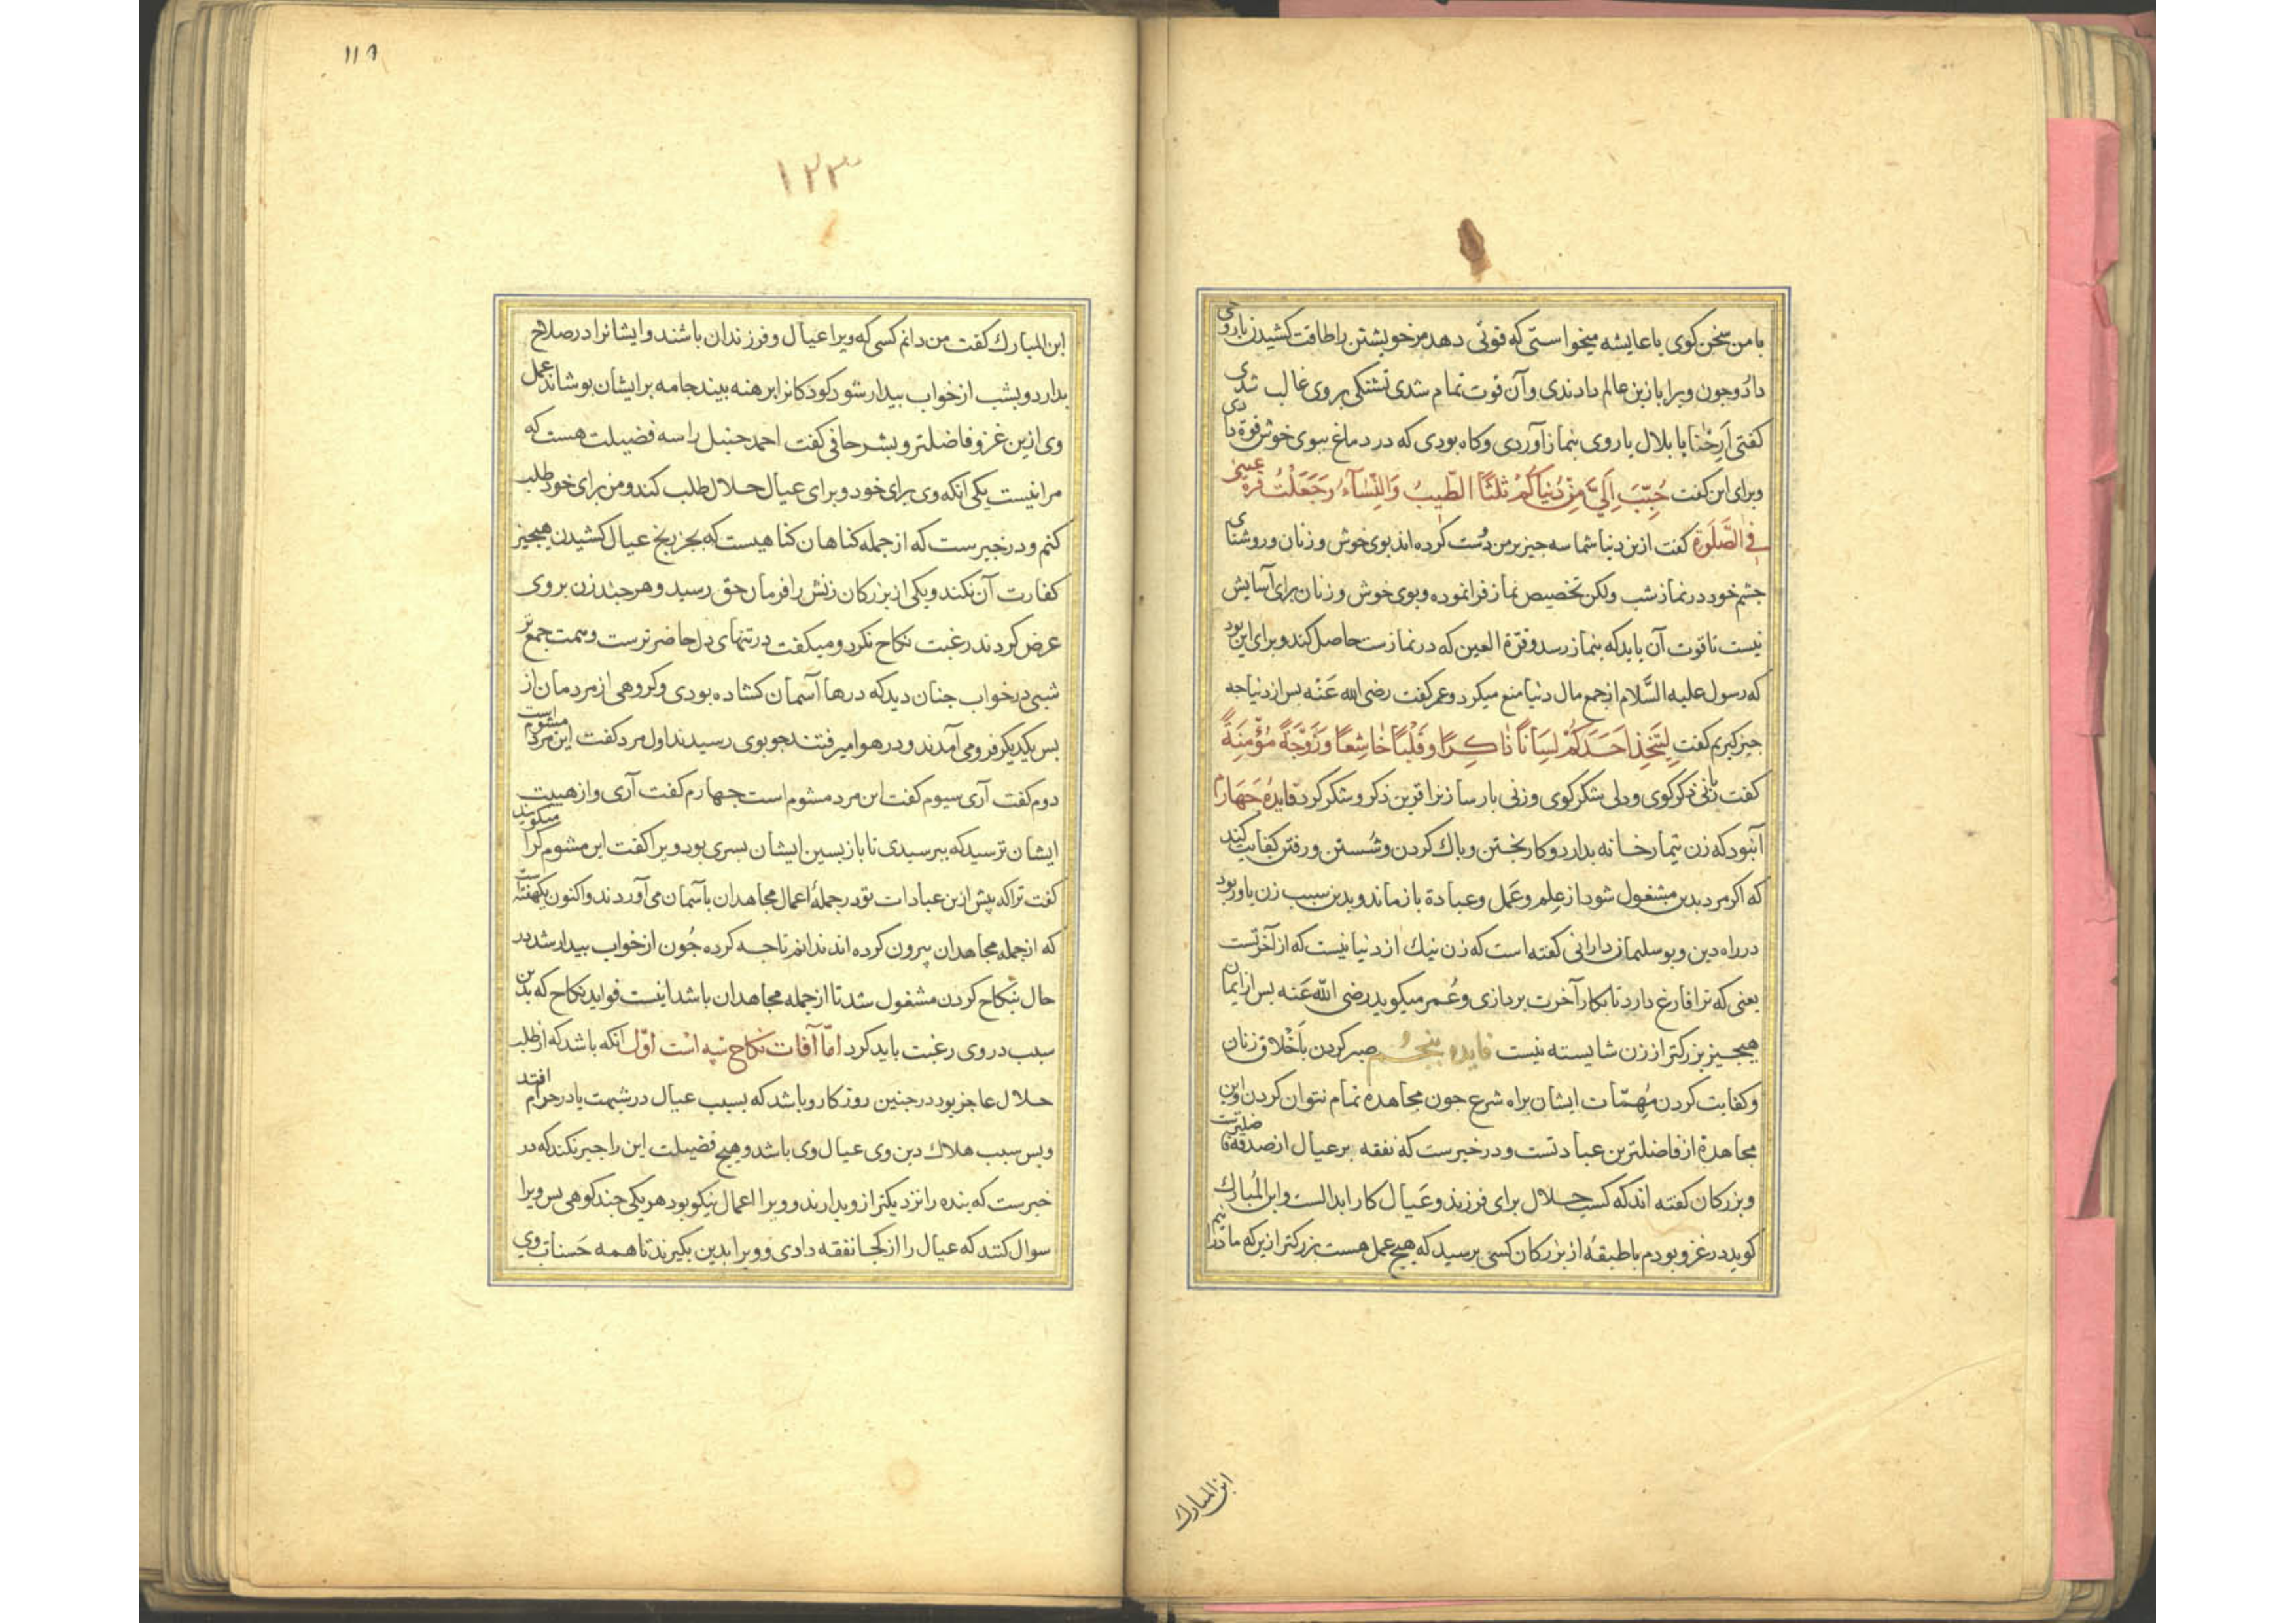 با من سخن كوى يا عايشه ميخواستى كه قوتى دهد مر خويشتن را طاقت كشيدن بار وى
دارد وچون ويرا باز بن عالم دادندى وآن قوت تمام شدى تشنكى بر وى غالب شدى
كفتى اَرِحْنا يا بلال يا روى بنماز آوردى وكاه بودى كه در دماغ ببوى خوش قوة دادى
وبراى اين كفت حُبِّبَ اِلَيَّ مِنْ دُنياكُمْ ثَلثًا الطّيبُ وَالنِّسآءُ وَجَعَلْتُ قرة عينى
فِى الصَّلَوةِ كفت ازين دنيا شما سه چيز بر من دُست كرده اند بوى خوش و زنان و روشناى
چشم خود در نماز شب ولكن تخصيص نماز فرا نموده وبوى خوش و زنان براى آسايش
نيست تا قوت آن يابد كه بنماز رسد وقرّة العين كه در نمازست حاصل كند وبراى اين بود
كه رسول عليه السَّلام از جمع مال دنيا منع ميكرد وعمر كفت رضى الله عَنْه بس از دنيا چه
چيز كيريم كفت لِيَتَّخِذ اَحَدَكُمْ لِسَانًا ذٰاكِرًا وقَلْبًا خٰاشِعًا وَزَوْجَةً مُؤْمِنَةً
كفت زبانى ذكر كوى ودلى شكر كوى وزنى بارسا زنرا قرين ذكر وشكر كرد فايدهٔ چهارم
آنبود كه زن تيمار خانه بدارد وكار پختن وباك كردن وشُستن ورفتن كفايت كند
كه اكر مرد بدين مشغول شود از عِلم وعَمل وعبادة باز ماند وبدين سبب زن ياور بود
در راه دين وبو سليمان دارانى كفته است كه زن نيك از دنيا نيست كه از آخرتست
يعنى كه ترا فارغ دارد تا بكار آخرت بردازى وعُمر ميكويد رضى الله عَنه بس از ايمان
هيچيز بزركتر از زن شايسته نيست فايده پنجُم صبر كردن باَخْلاق زنان
وكفايت كردن مُهِمّات ايشان براه شرع جون مجاهده تمام نتوان كردن واين
مجاهدة از فاضلترين عبادتست و در خبرست كه نفقه بر عيال از صدقه فاضلترست
وبزركان كفته اند كه كسب حلال براى فرزند وعَيال كار ابدالست وابن المُبارك
كويد در غزو بودم با طبقهٔ از بزركان كسى برسيد كه هيچ عمل هست بزركتر ازين كه ما درانيم
ابن المبارك
١١٩
١٢٣
ابن المبارك كفت من دانم كسى كه ويرا عيال وفرزندان باشند وايشانرا در صلاح
بدارد وبشب از خواب بيدار شود كودكانرا برهنه بيند جامه بر ايشان بوشاند عمل
وى ازين غزو فاضلتر وبشر حافى كفت احمد حنبل را سه فضيلت هست كه
مرا نيست يكى آنكه وى براى خود وبراى عيال حلال طلب كند ومن براى خود طلب
كنم و در خبرست كه از جمله كناهان كناهيست كه بجز رنج عيال كشيدن هيچيز
كفارت آن نكند ويكى از بزركان زنش را فرمان حق رسيد و هرچند زن بر وى
عرض كردند رغبت نكاح نكرد وميكفت در تنهاى دل حاضر ترست وهمت جمع تر
شبى در خواب جنان ديد كه درها آسمان كشاده بودى وكروهى از مردمان از
بس يكديكر فرو مى آمدند و در هوا ميرفتند جو بوى رسيدند اول مرد كفت اين مرد مشوم است
دوم كفت آرى سيوم كفت اين مرد مشوم است جهارم كفت آرى واز هيبت
ايشان ترسيد كه ببرسيدى تا بازپسين ايشان بسرى بود ويرا كفت اين مشوم كرا ميكويند
كفت ترا كه پيش ازين عبادات تو در جملهٔ اعمال مجاهدان بآسمان مى آوردند واكنون يكهفته است
كه از جمله مجاهدان بيرون كرده اند ندانم تا چه كرده جُون از خواب بيدار شد در
حال بنكاح كردن مشغول شد تا از جمله مجاهدان باشد اينست فوايد نكاح كه بدين
سبب در وى رغبت بايد كرد امّا آفات نكاح سه است اوّل آنكه باشد كه از طلب
حلال عاجز بود در چنين روزكار وباشد كه بسبب عيال در شبهت يا در حرام افتد
وبس سبب هلاك دين وى عيال وى باشد وهيچ فضيلت اين را جبر نكند كه در
خبرست كه بنده را نزد يكتر ازو بدارند و ويرا اعمال نيكو بود هريكى جند كوهى بس ويرا
سوال كنند كه عيال را از كجا نفقه دادى و ويرا بدين بكيرند تا همه حَسناتِ وى